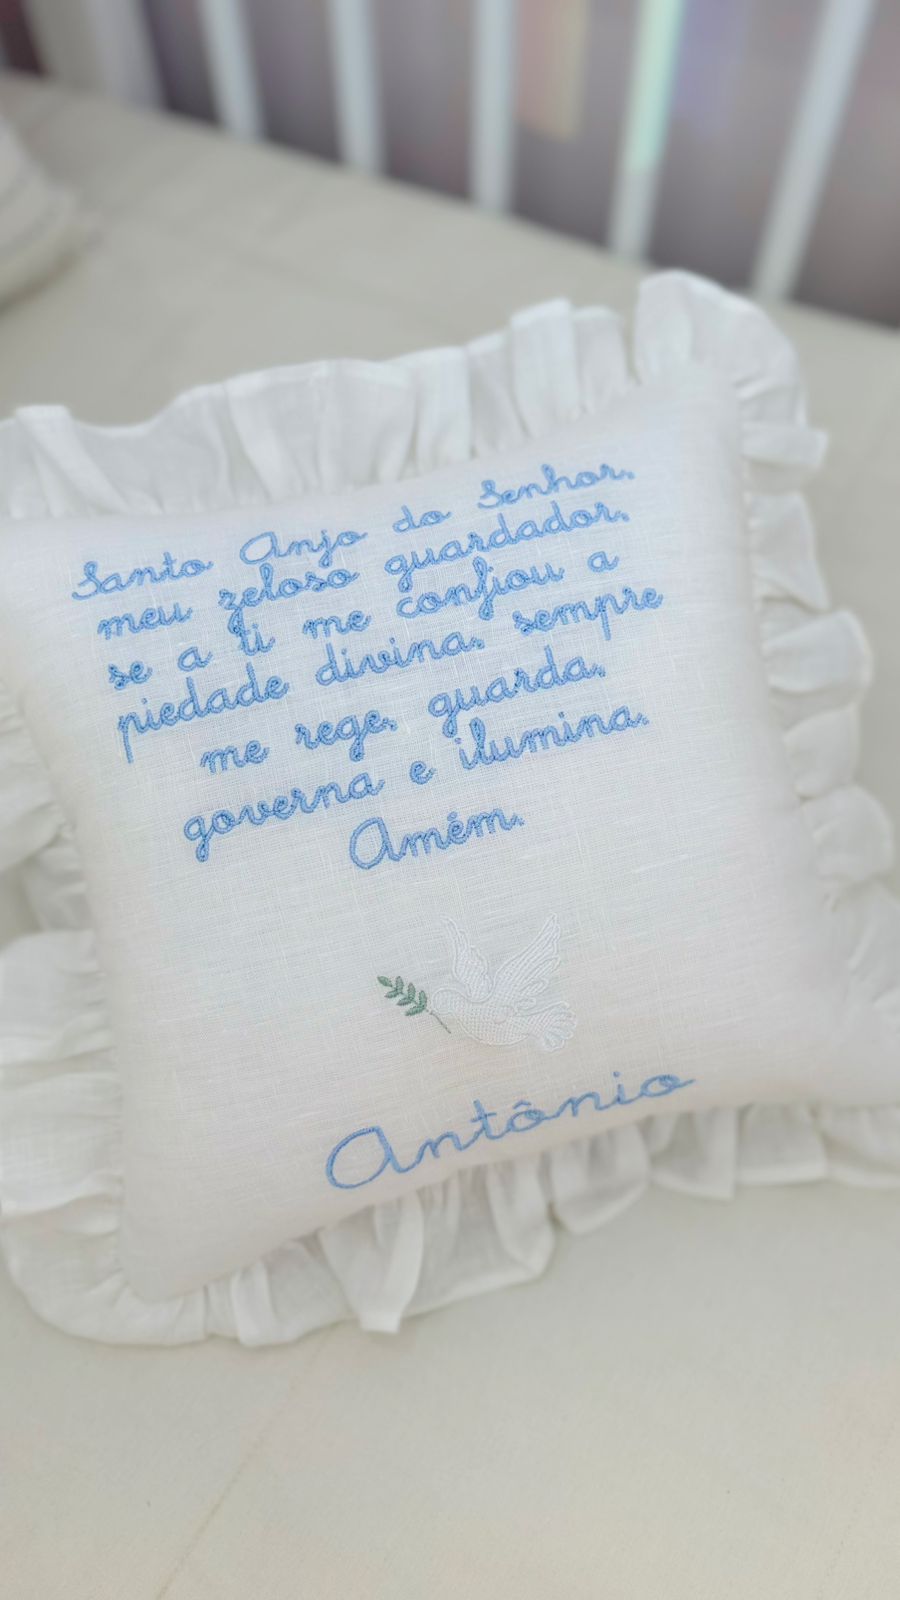 Santo Anjo do Senhor,
meu zeloso guardador,
se a ti me confiou a
piedade divina, sempre
me rege, guarda,
governa e ilumina.
Amém.
Antônio